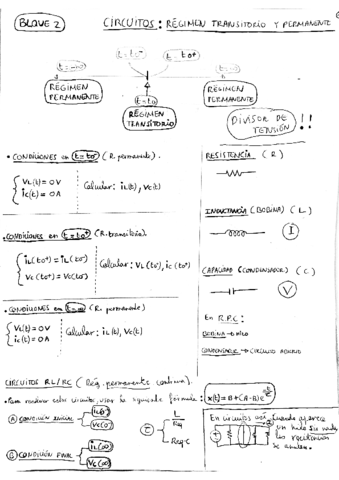 BLOQUE 2
CIRCUITOS: RÉGIMEN TRANSITORIO Y PERMANENTE
t=-∞
t=to⁻
t=to⁺
t=∞
RÉGIMEN PERMANENTE
t=to
RÉGIMEN TRANSITORIO
RÉGIMEN PERMANENTE
DIVISOR DE TENSIÓN !!
• CONDICIONES en t=to⁻ (R. permanente).
VL(t)=0V
ic(t)=0A
Calcular: iL(t), Vc(t)
RESISTENCIA (R)
INDUCTANCIA (BOBINA) (L)
I
• CONDICIONES en t=to⁺ (R. transitorio).
iL(to⁺)=iL(to⁻)
Vc(to⁺)=Vc(to⁻)
Calcular: VL(to⁺), ic(to⁺)
CAPACIDAD (CONDENSADOR) (C)
V
• CONDICIONES en t=∞ (R. permanente)
VL(t)=0V
ic(t)=0A
Calcular: iL(t), Vc(t)
En R.P.C:
BOBINA → HILO
CONDENSADOR → CIRCUITO ABIERTO
CIRCUITOS RL/RC (Rég. permanente continua).
• Para resolver estos circuitos, usar la siguiente fórmula:
x(t)=B+(A-B)e^-t/τ
A CONDICIÓN INICIAL
iL(0⁺)
Vc(0⁺)
τ
L
Req
Req·C
B CONDICIÓN FINAL
iL(∞)
Vc(∞)
En circuitos así, cuando aparece
un hilo
las resistencias
se anulan.